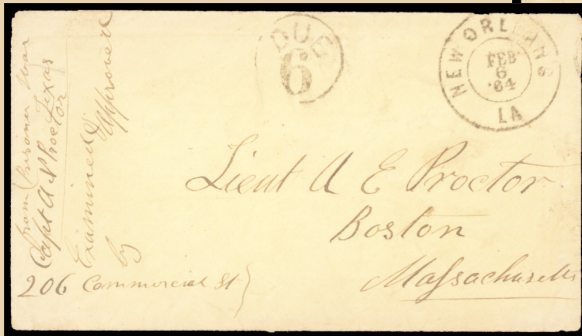 from Prisoner War
Capt A N Proctor Texas
Examined & Approved
by
DUE
6
NEW ORLEANS
FEB
6
'64
LA
Lieut A E Proctor
Boston
Massachusetts
206 Commercial St